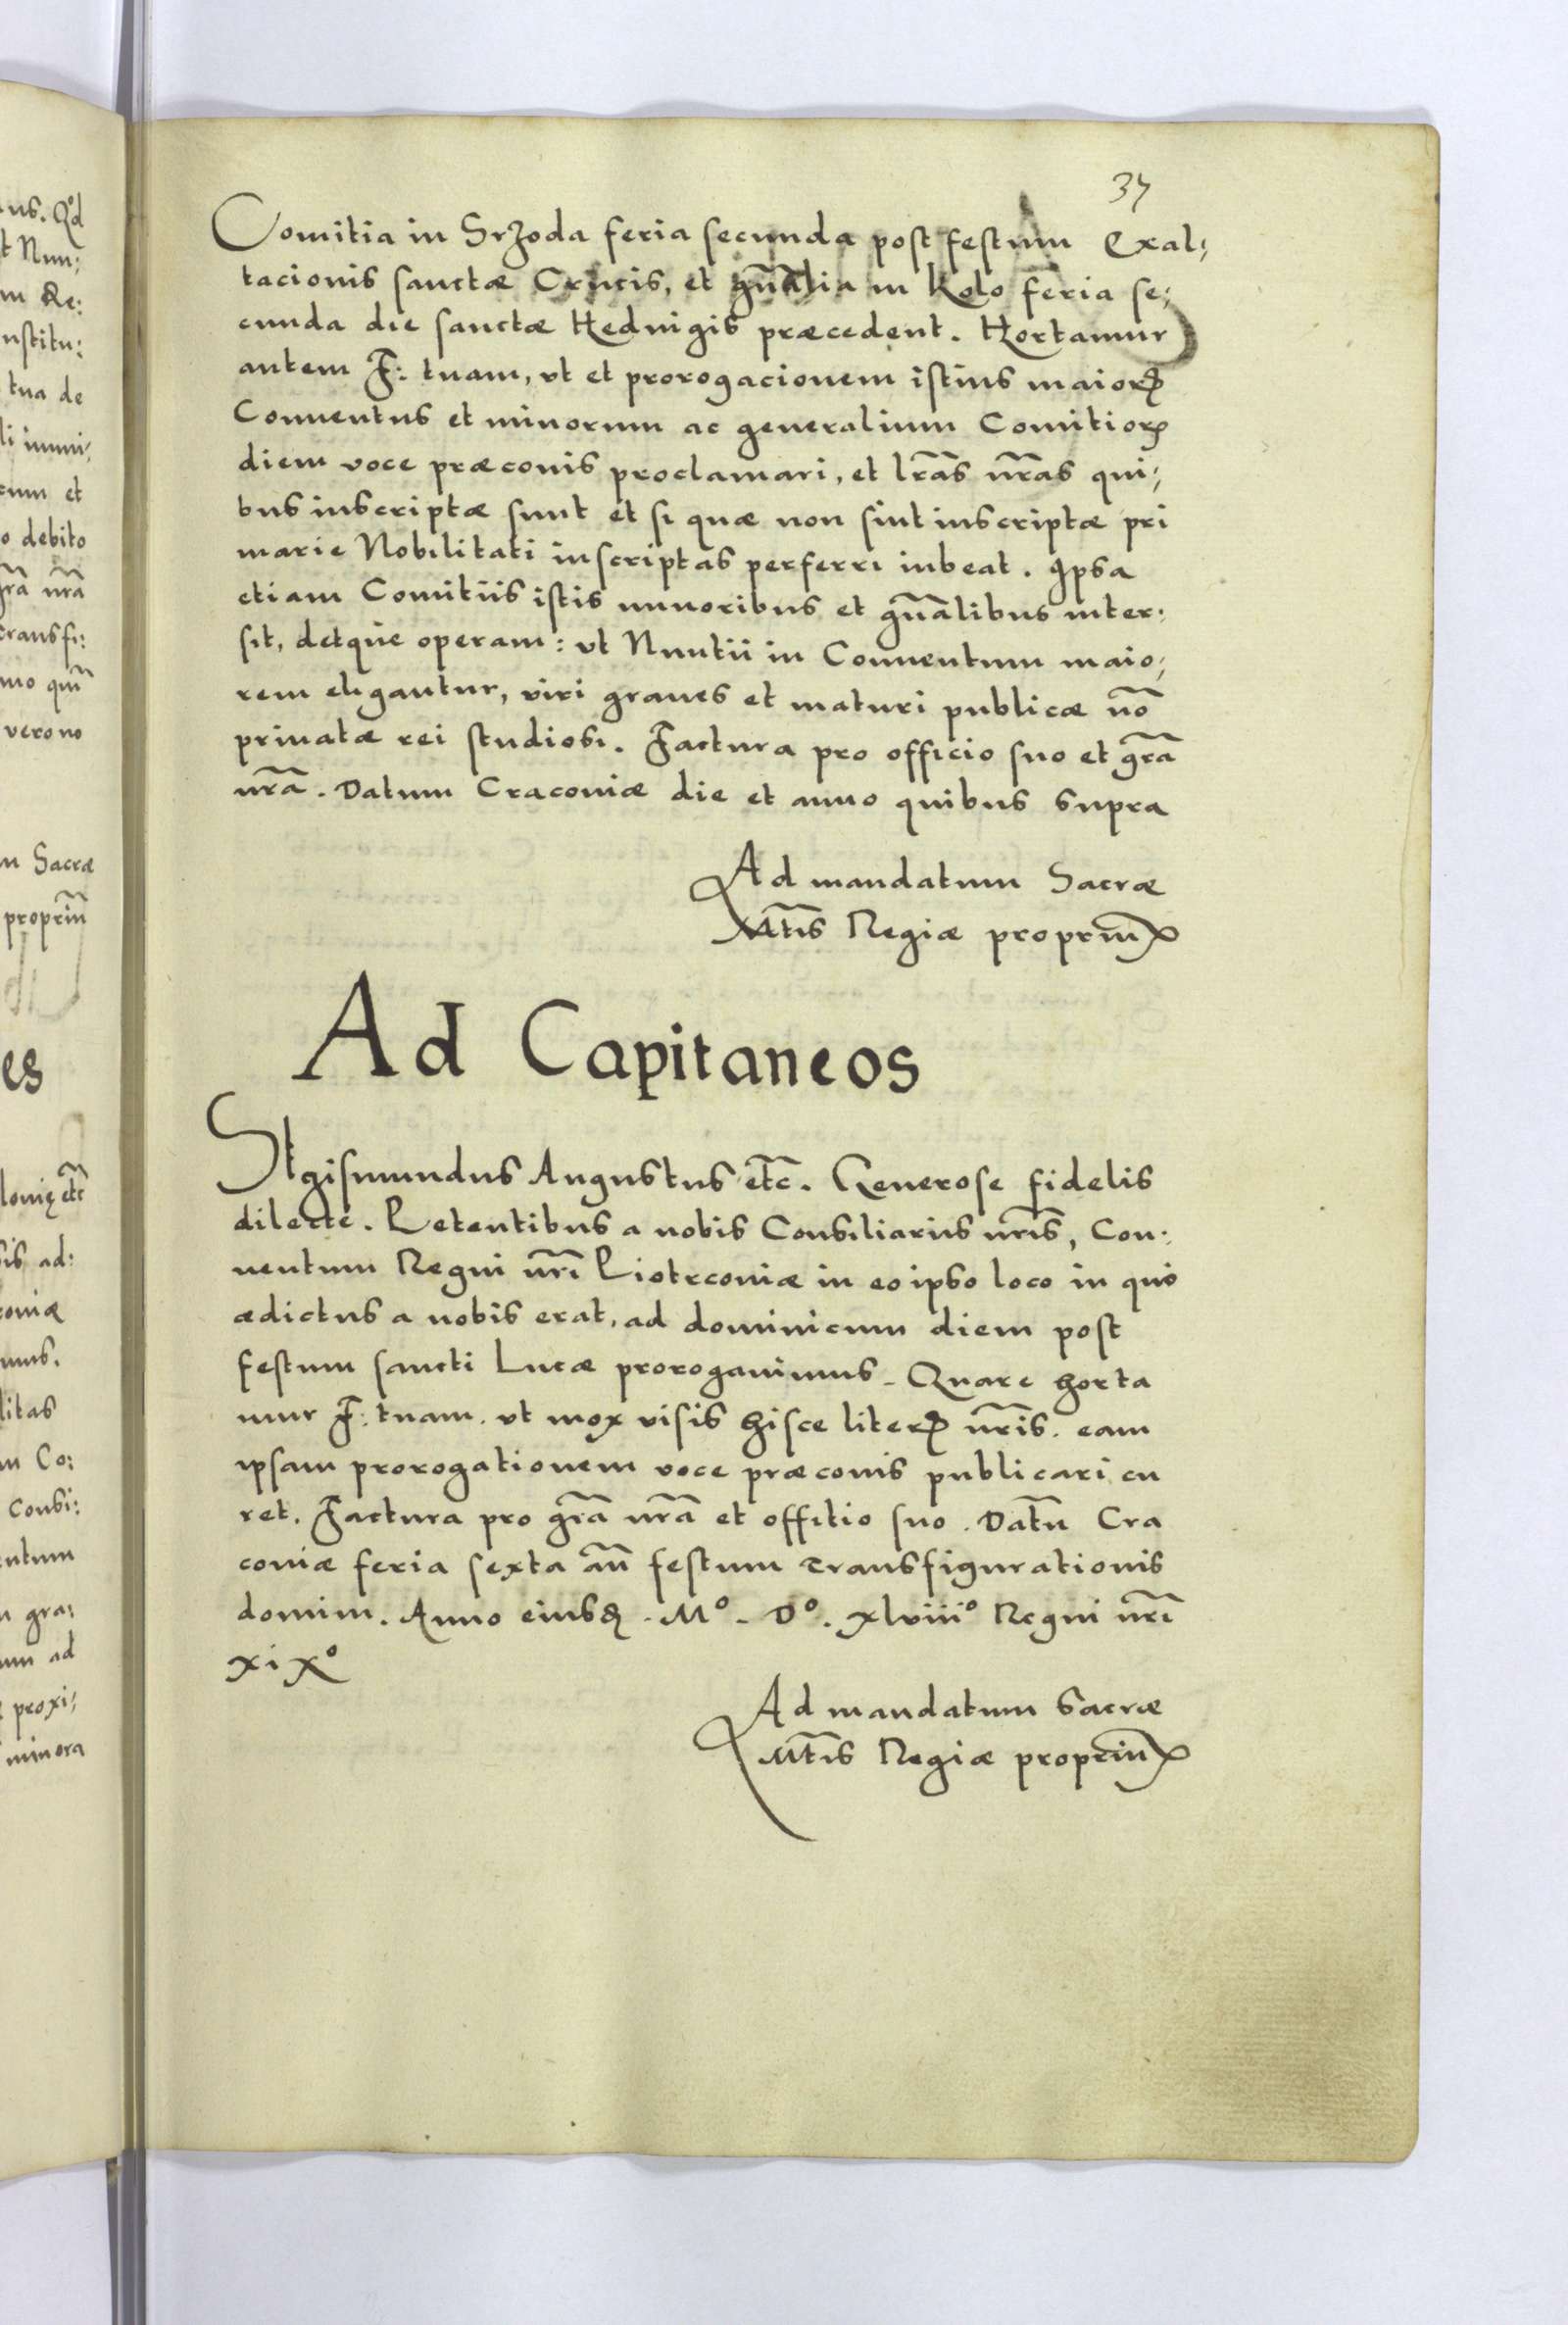 37
Comitia in Srzoda feria secunda post festum Exal;
tacionis sanctæ Crucis, et gñalia in Kolo feria se;
cunda die sanctæ Heduigis præcedent. Hortamur
autem F: tuam, vt et prorogacionem istius maiorꝭ
Conuentus et minorum ac generalium Comitiorꝝ
diem voce præconis proclamari, et lr̃as nr̃as qui;
bus inscriptæ sunt et si quæ non sint inscriptæ pri
marie Nobilitati inscriptas perferri iubeat. Ipsa
etiam Comitiis istis minoribus et gñalibus inter:
sit, detque operam: vt Nuntii in Conuentum maio;
rem eligantur, viri graues et maturi publicæ nõ
priuatæ rei studiosi. Factura pro officio suo et gr̃a
nr̃a. Datum Cracouiæ die et anno quibus supra
Ad mandatum Sacræ
Mt̃is Regiæ propriũ
Ad Capitaneos
SIgismundus Augustus etc̃. Generose fidelis
dilecte. Petentibus a nobis Consiliariis nr̃is, Con:
uentum Regni nr̃i Piotrcouiæ in eo ipso loco in quo
ædictus a nobis erat, ad dominicum diem post
festum sancti Lucæ prorogauimus. Quare horta
mur F: tuam. vt mox visis hisce literꝭ nr̃is. eam
ipsam prorogationem voce præconis publicari cu
ret. Factura pro gr̃a nr̃a et offitio suo. Datũ Cra
couiæ feria sexta añ festum Transfigurationis
domini. Anno eiusꝺ. Mº. Dº. xlviiiº Regni nr̃i
xixº
Ad mandatum Sacræ
Mt̃is Regiæ propriũ
us. Qd
t Nun;
m Re:
nstitu:
tua de
li inimi;
rum et
o debito
gr̃a nr̃a
transfi:
mo qm̃
vero no
m Sacræ
propriũ
es
lonię etc̃
sis ad:
coniæ
mus.
litas
m Co:
Consi:
entum
n gra;
um ad
proxi;
minora